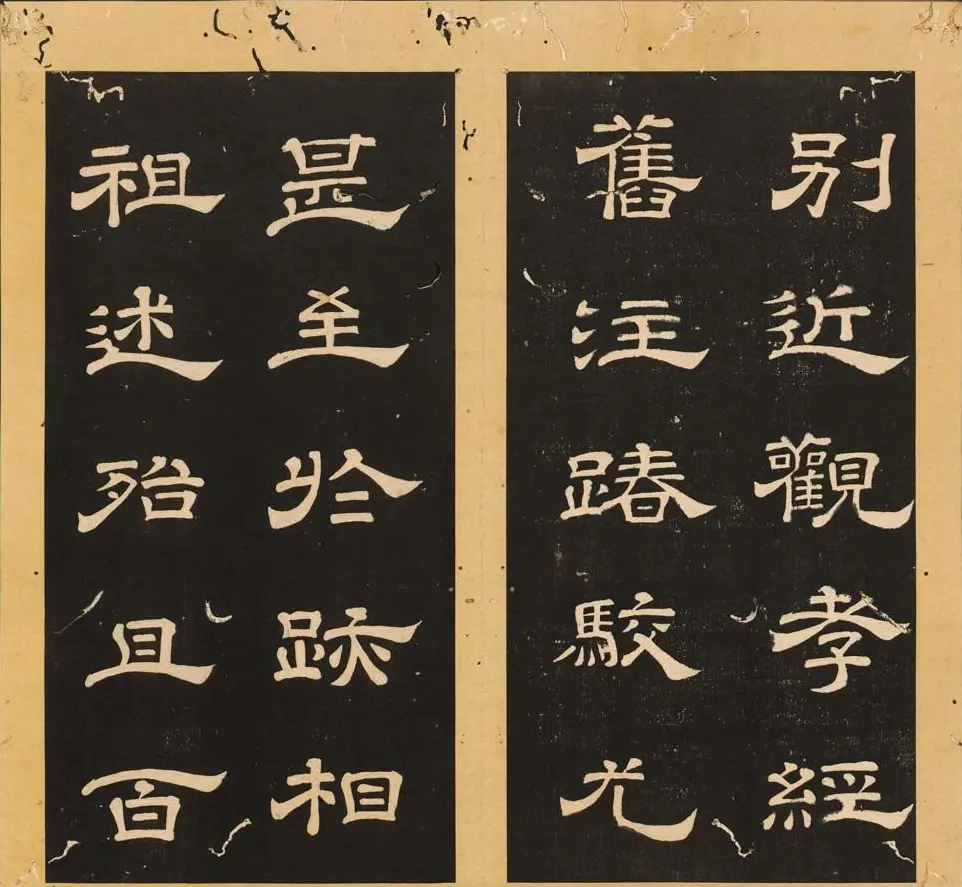 別近觀孝經
舊注踳駮尤
甚至於跡相
祖述殆且百